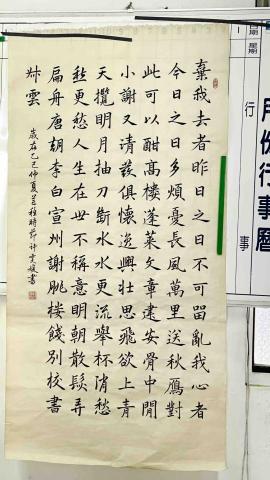 棄我去者昨日之日不可留亂我心者
今日之日多煩憂長風萬里送秋鴈對
此可以酣高樓蓬萊文章建安骨中間
小謝又清發俱懷逸興壯思飛欲上青
天攬明月抽刀斷水水更流舉杯消愁
愁更愁人生在世不稱意明朝散髮弄
扁舟唐朝李白宣州謝朓樓餞別校書
叔雲
歲在乙巳仲夏芒種時節許雯媛書
月份行事曆
星期
星期
行
行
事